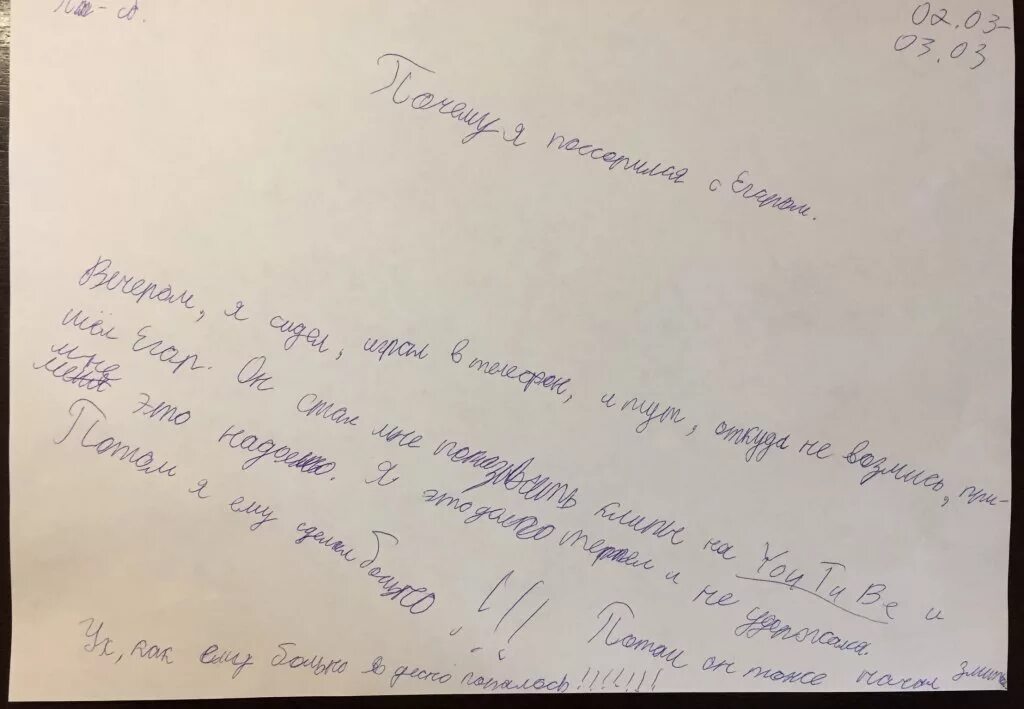 Пн-ск.
02.03-
03.03
Почему я поссорился с Егаром.
Вечерам, я сидел, играл в телефон, и тут, откуда не возмись, при-
шёл Егар. Он стал мне показывать клипы на YouTuBe и
мне
меня это надоело. Я это долго терпел и не удержался.
Потом я ему сделал больно !!! Потом он тоже начал злиться
Ух, как ему больно в десно попалось!!!!!!!